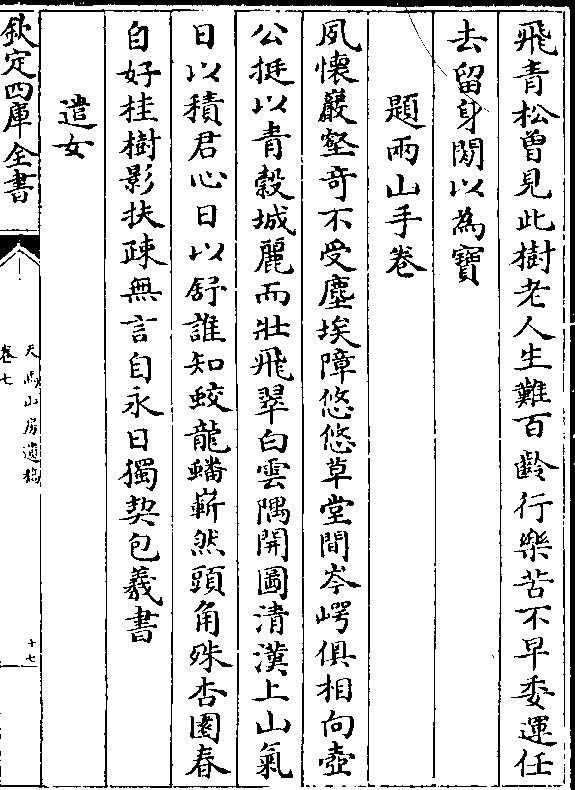 飛青松曽見此樹老人生難百齡行樂苦不早委運任
去留身閒以為寶
題兩山手卷
夙懷巖壑奇不受塵埃障悠悠草堂間岑崿俱相向壺
公挺以青榖城麗而壯飛翠白雲隅開圖清漢上山氣
日以積君心日以舒誰知蛟龍蟠嶄然頭角殊杏園春
自好桂樹影扶疎無言自永日獨契包羲書
遣女
欽定四庫全書
天馬山房遺稿
卷七
十七